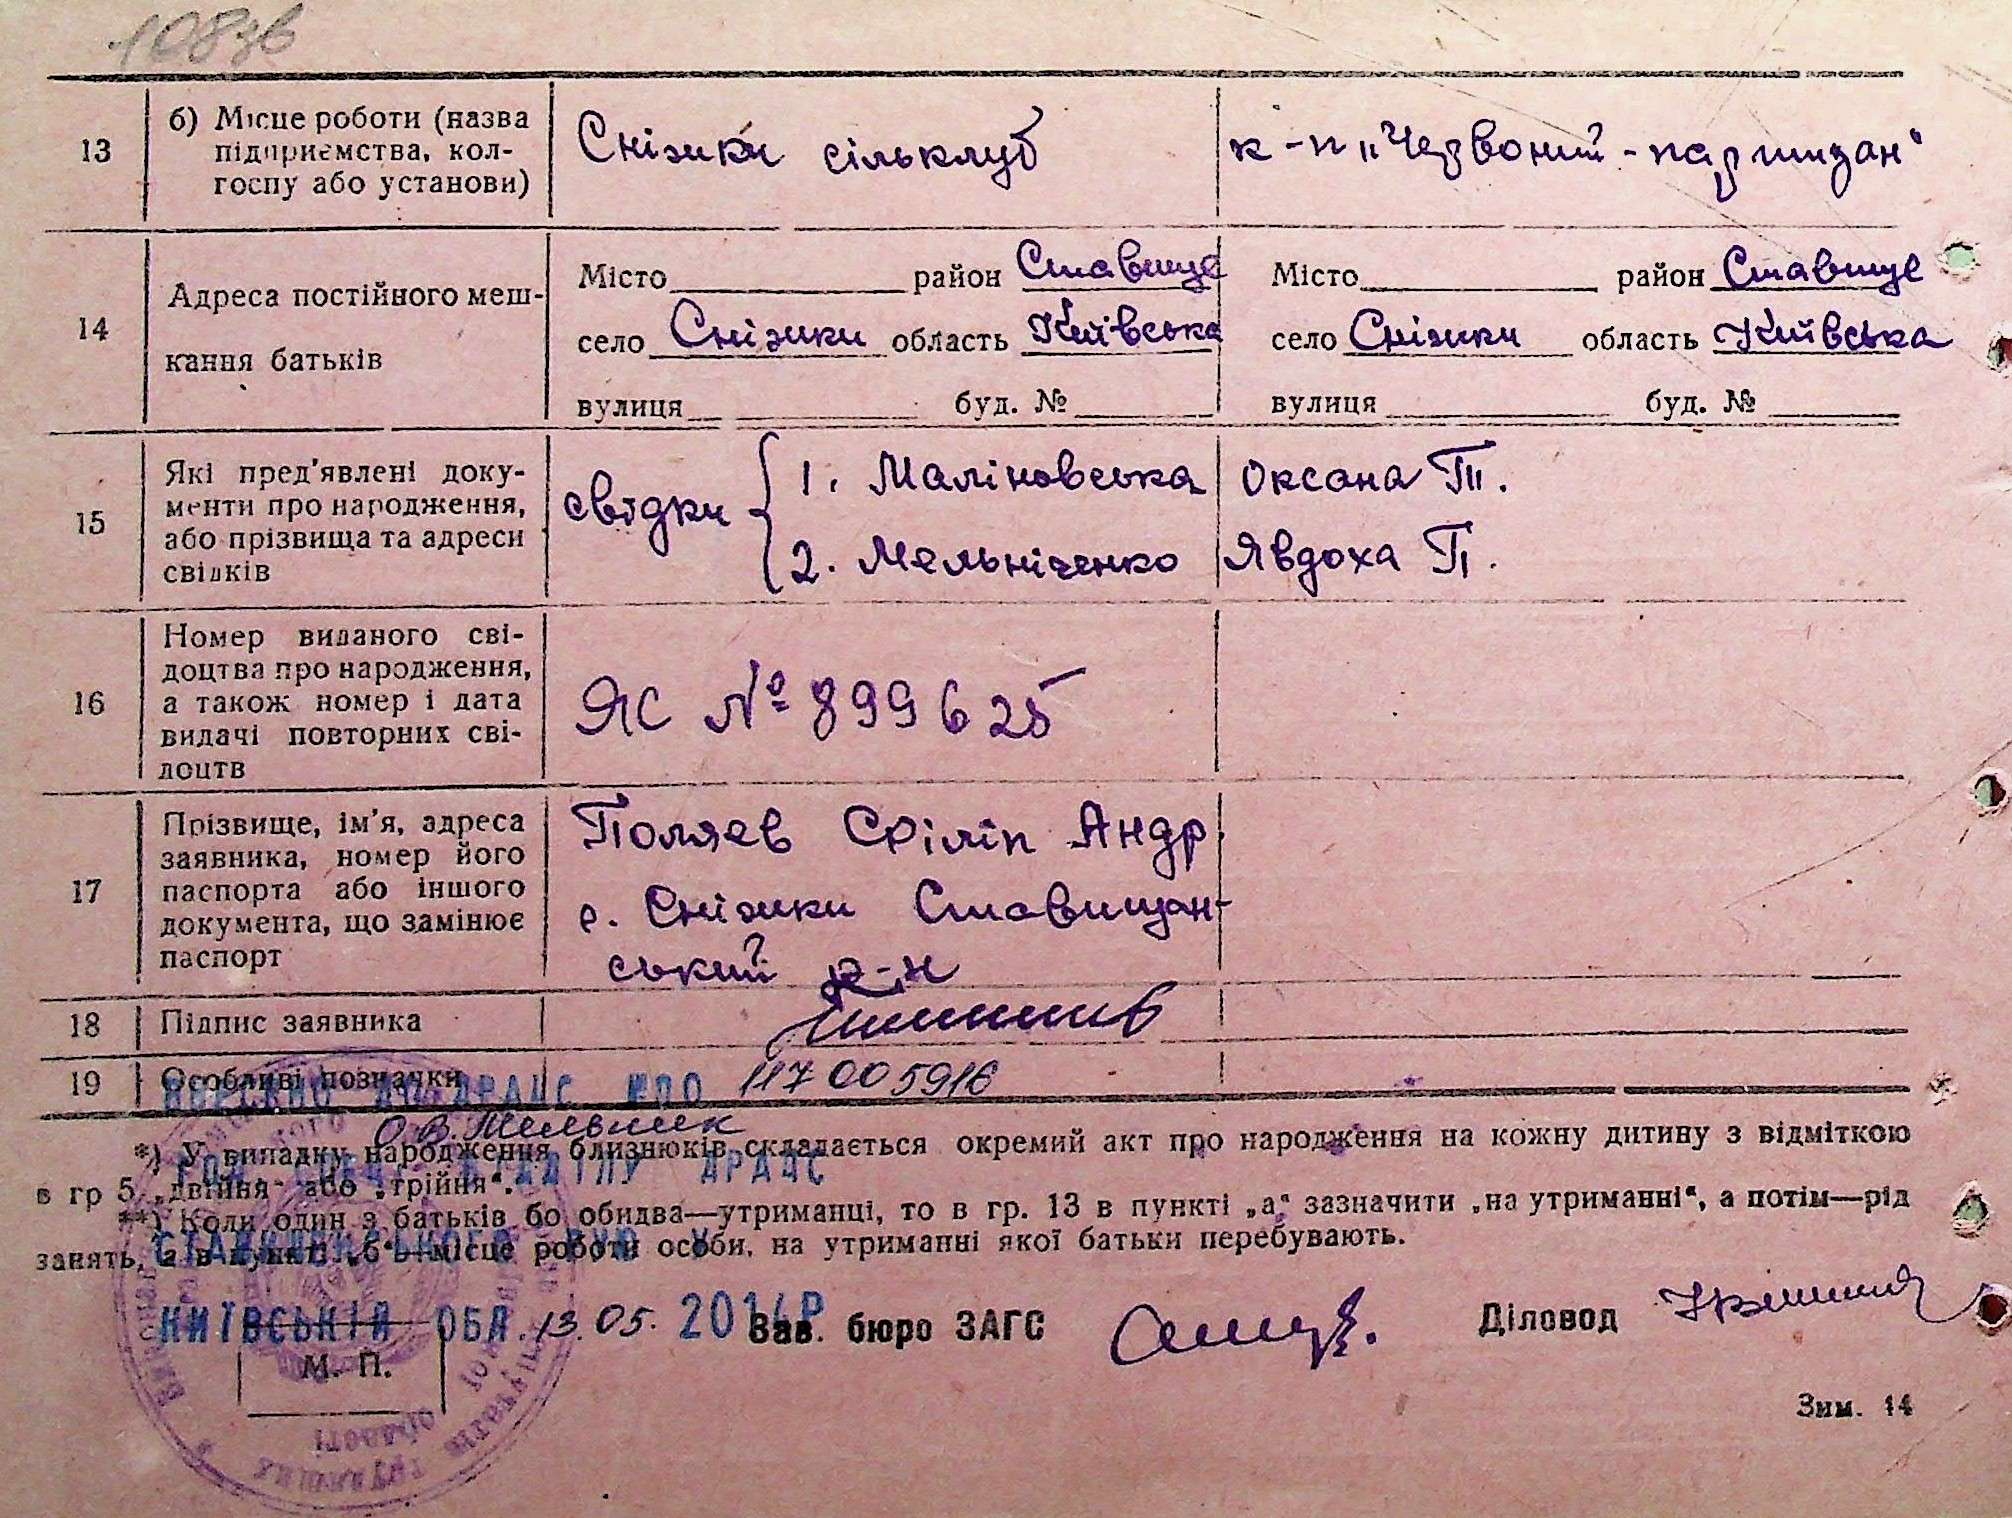 108зв
13
б) Місце роботи (назва
підприємства, кол-
госпу або установи)
Сніжки сільклуб
к-п „Червоний-партизан"
14
Адреса постійного меш-
кання батьків
Місто район Ставище
село Сніжки область Київська
вулиця буд. №
Місто район Ставище
село Сніжки область Київська
вулиця буд. №
15
Які пред'явлені доку-
менти про народження,
або прізвища та адреси
свідків
свідки
1. Маліновська Оксана П.
2. Мельніченко Явдоха П.
16
Номер виданого сві-
доцтва про народження,
а також номер і дата
видачі повторних сві-
доцтв
ЯС № 899625
17
Прізвище, ім'я, адреса
заявника, номер його
паспорта або іншого
документа, що замінює
паспорт
Поляев Філіп Андр.
с. Сніжки Ставищан-
ський р-н
18
Підпис заявника
19
Особливі позначки
ВНЕСЕНО ДО ДРАЦС №ПО 117005916
О.В. Мельник
ВІДДІЛУ ДРАЦС
*) У випадку народження близнюків складається окремий акт про народження на кожну дитину з відміткою
в гр 5 „двійня" або „трійня".
**) Коли один з батьків бо обидва—утриманці, то в гр. 13 в пункті „а" зазначити „на утриманні", а потім—рід
занять, а в пункті „б"—місце роботи особи, на утриманні якої батьки перебувають.
СТАВИЩЕНСЬКОГО РУЮ У
КИЇВСЬКІЙ ОБЛ. 13.05. 2014Р
Зав. бюро ЗАГС
Діловод
М. П.
Зим. 14